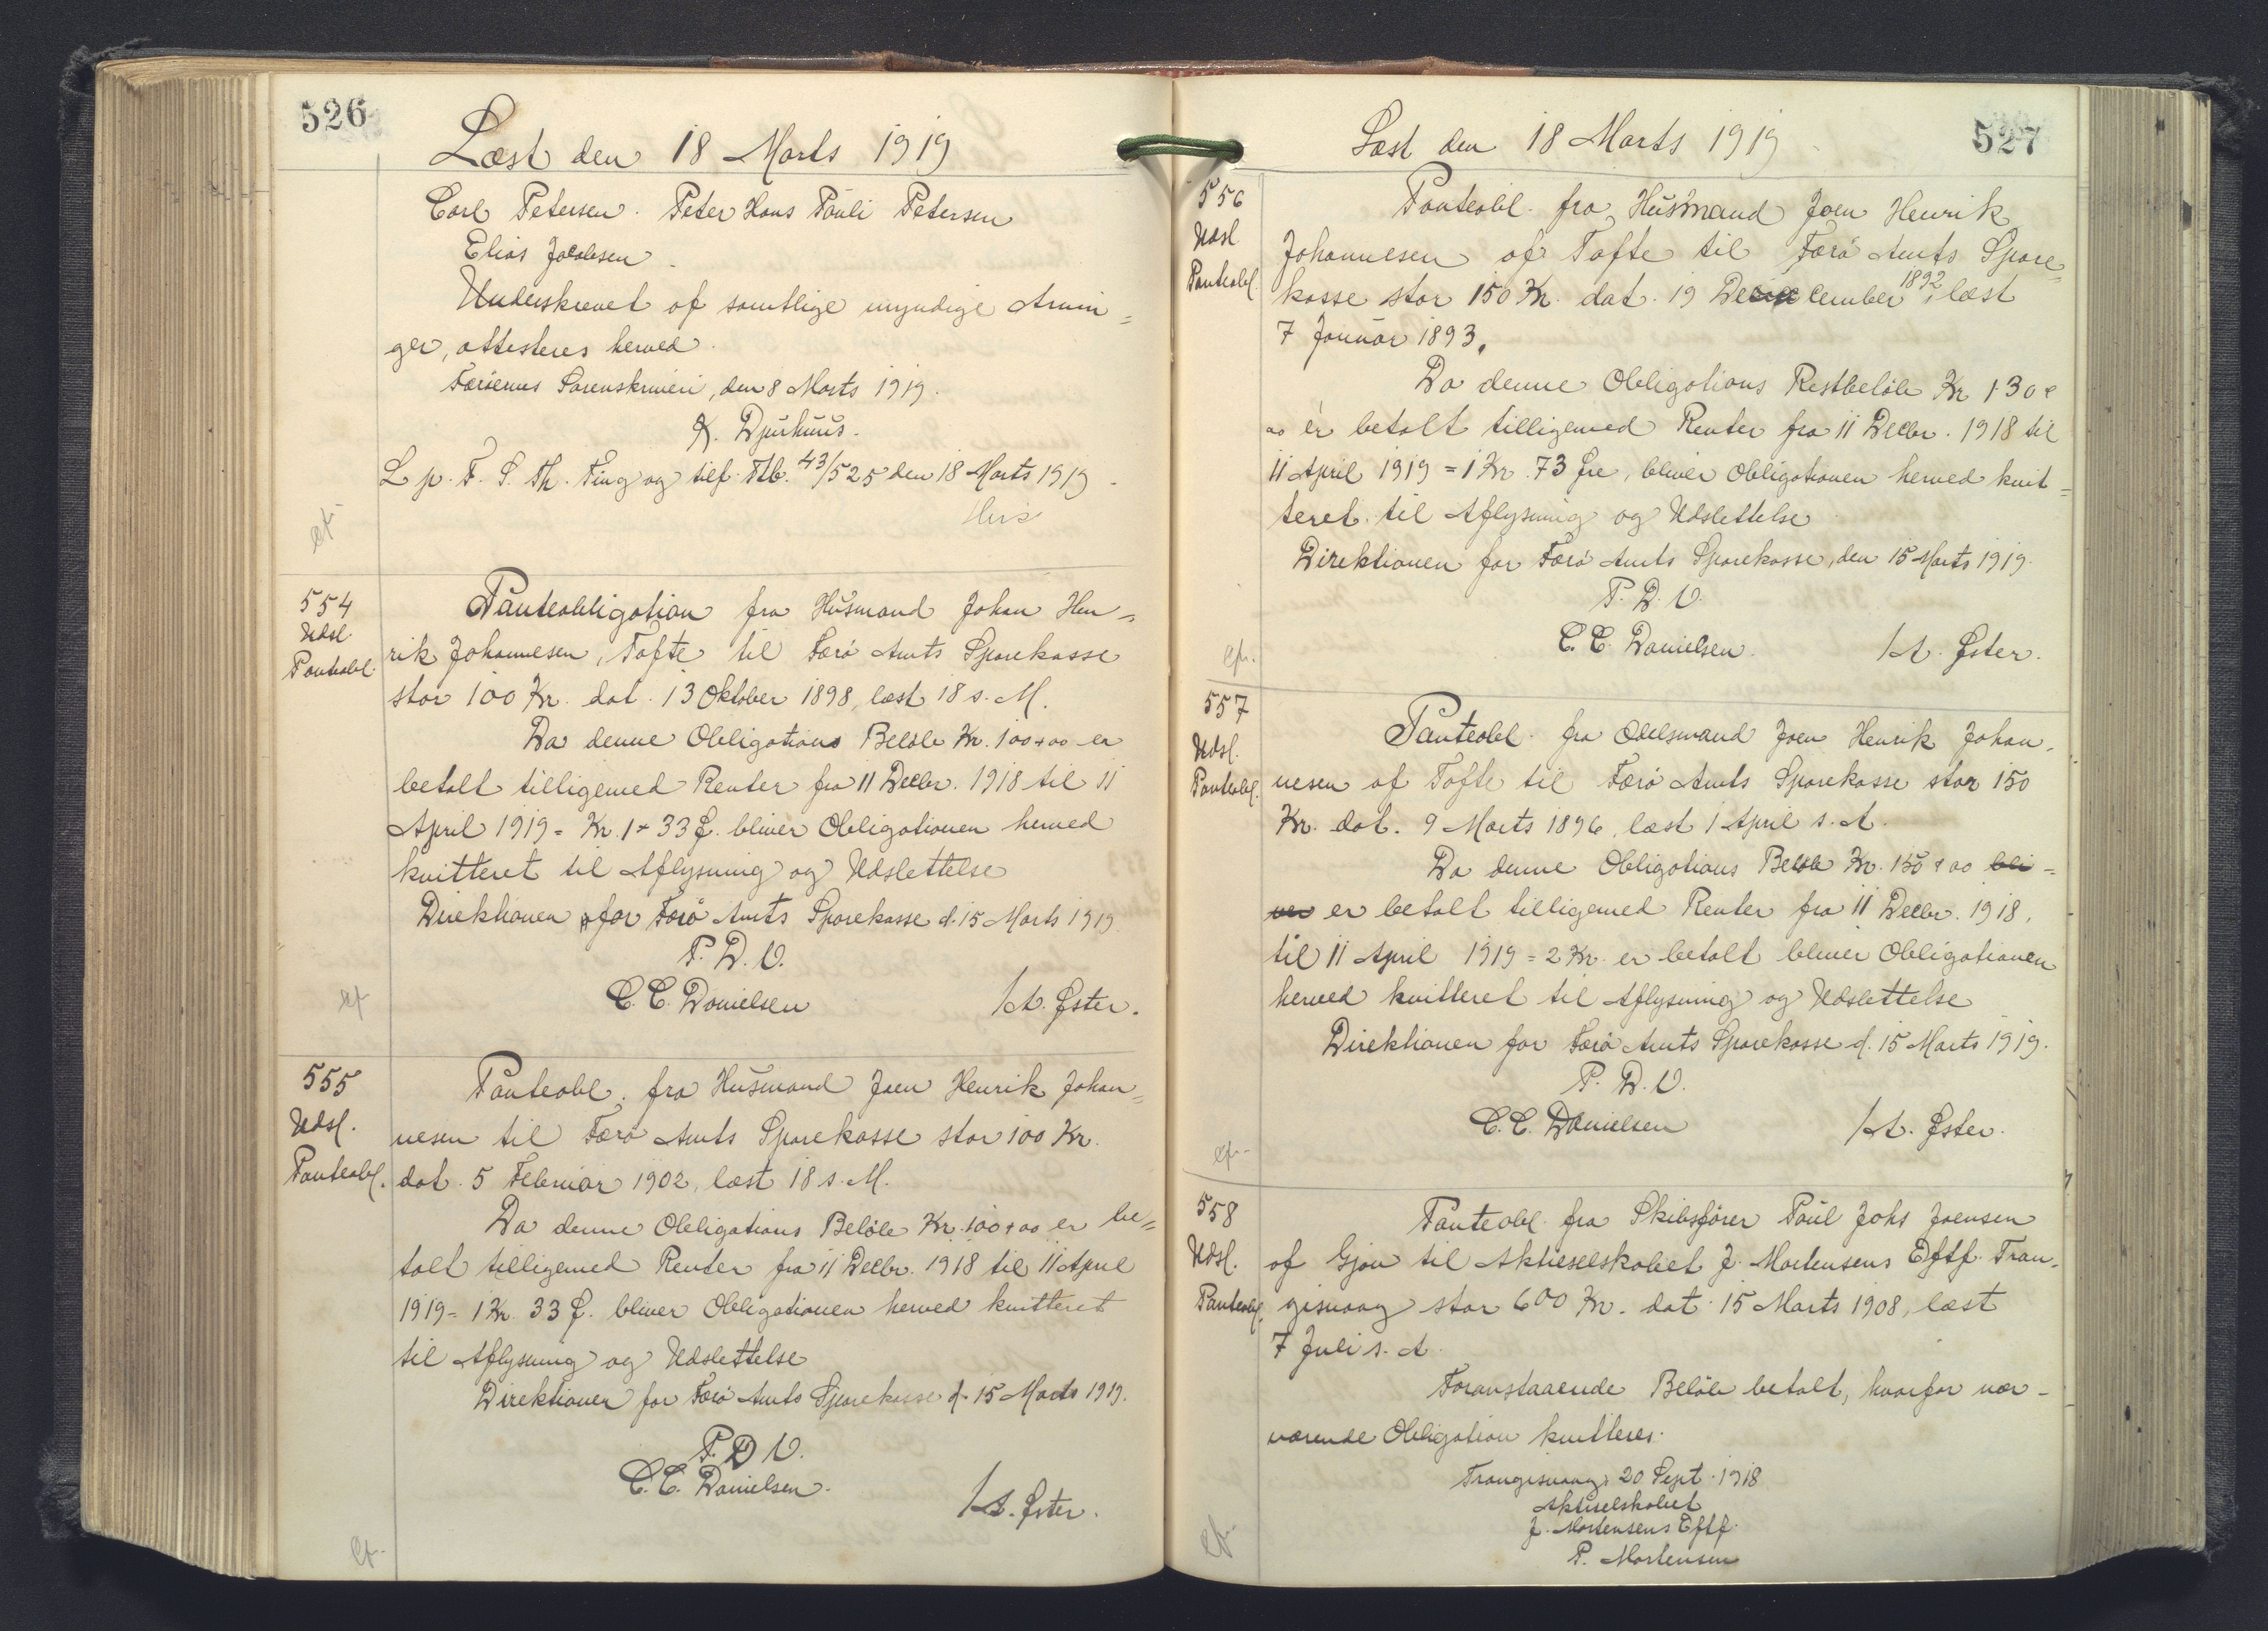 526
Læst den 18 Marts 1919
Carl Petersen. Peter Hans Pauli Petersen
Elias Jacobsen.
Underskrevet af samtlige myndige Arvin=
ger, attesteres herved.
Færøernes Sorenskriveri, den 8 Marts 1919.
K. Djurhuus.
L p. F. S. Th. Ting og tilf. Ptb. 43/525 den 18 Marts 1919.
cfr.
554
Udsl.
Panteobl.
Panteobligation fra Husmand Johan Hen=
rik Johannesen, Tofte til Færø Amts Sparekasse
stor 100 Kr. dat. 13 Oktober 1898, læst 18 s. M.
Da denne Obligations Beløb Kr. 100+00 er
betalt tilligemed Renter fra 11 Decbr. 1918 til 11
April 1919 = Kr. 1+33 Ø. bliver Obligationen herved
kvitteret til Aflysning og Udslettelse
Direktionen for Færø Amts Sparekasse d. 15 Marts 1919.
P. D. V.
C. C. Danielsen
/A. Øster.
cfr
555
Udsl.
Panteobl.
Panteobl. fra Husmand Joen Henrik Johan=
nesen til Færø Amts Sparekasse stor 100 Kr.
dat. 5 Februar 1902, læst 18 s. M.
Da denne Obligations Beløb Kr. 100+00 er be=
talt tilligemed Renter fra 11 Decbr. 1918 til 11 April
1919 = 1 Kr. 33 Ø. bliver Obligationen herved kvitteret
til Aflysning og Udslettelse
Direktionen for Færø Amts Sparekasse d. 15 Marts 1919.
P. D V.
C. C. Danielsen.
/A. Øster.
cfr.
527
Læst den 18 Marts 1919
556
Udsl
Panteobl.
Panteobl. fra Husmand Joen Henrik
Johannesen af Tofte til Færø Amts Spare=
kasse stor 150 Kr. dat. 19 December 1892, læst
7 Januar 1893.
Da denne Obligations Restbeløb Kr 130+
00 er betalt tilligemed Renter fra 11 Decbr. 1918 til
11 April 1919 = 1 Kr. 73 Øre, bliver Obligationen herved kvit=
teret til Aflysning og Udslettelse
Direktionen for Færø Amts Sparekasse, den 15 Marts 1919.
P. D. V.
C. C. Danielsen.
/A. Øster.
cfr.
557
Udsl.
Panteobl.
Panteobl. fra Odelsmand Joen Henrik Johan=
nesen af Tofte til Færø Amts Sparekasse stor 150
Kr. dat. 9 Marts 1896, læst 1 April s. A.
Da denne Obligations Beløb Kr. 150+00 bli=
ver er betalt tilligemed Renter fra 11 Decbr. 1918,
til 11 April 1919 = 2 Kr. er betalt bliver Obligationen
herved kvitteret til Aflysning og Udslettelse
Direktionen for Færø Amts Sparekasse d. 15 Marts 1919.
P. D. V.
C. C. Danielsen
/A. Øster.
cfr.
558
Udsl.
Panteobl.
Panteobl. fra Skibsfører Poul Johs Joensen
af Gjov til Aktieselskabet J. Mortensens Eftf. Tran=
gisvaag stor 600 Kr. dat. 15 Marts 1908, læst
7 Juli s. A.
Foranstaaende Beløb betalt, hvorfor nær=
værende Obligation kvitteres.
Trangisvaag, 20 Sept. 1918
Aktieselskabet
J. Mortensens Eftf.
P. Mortensen
cfr.